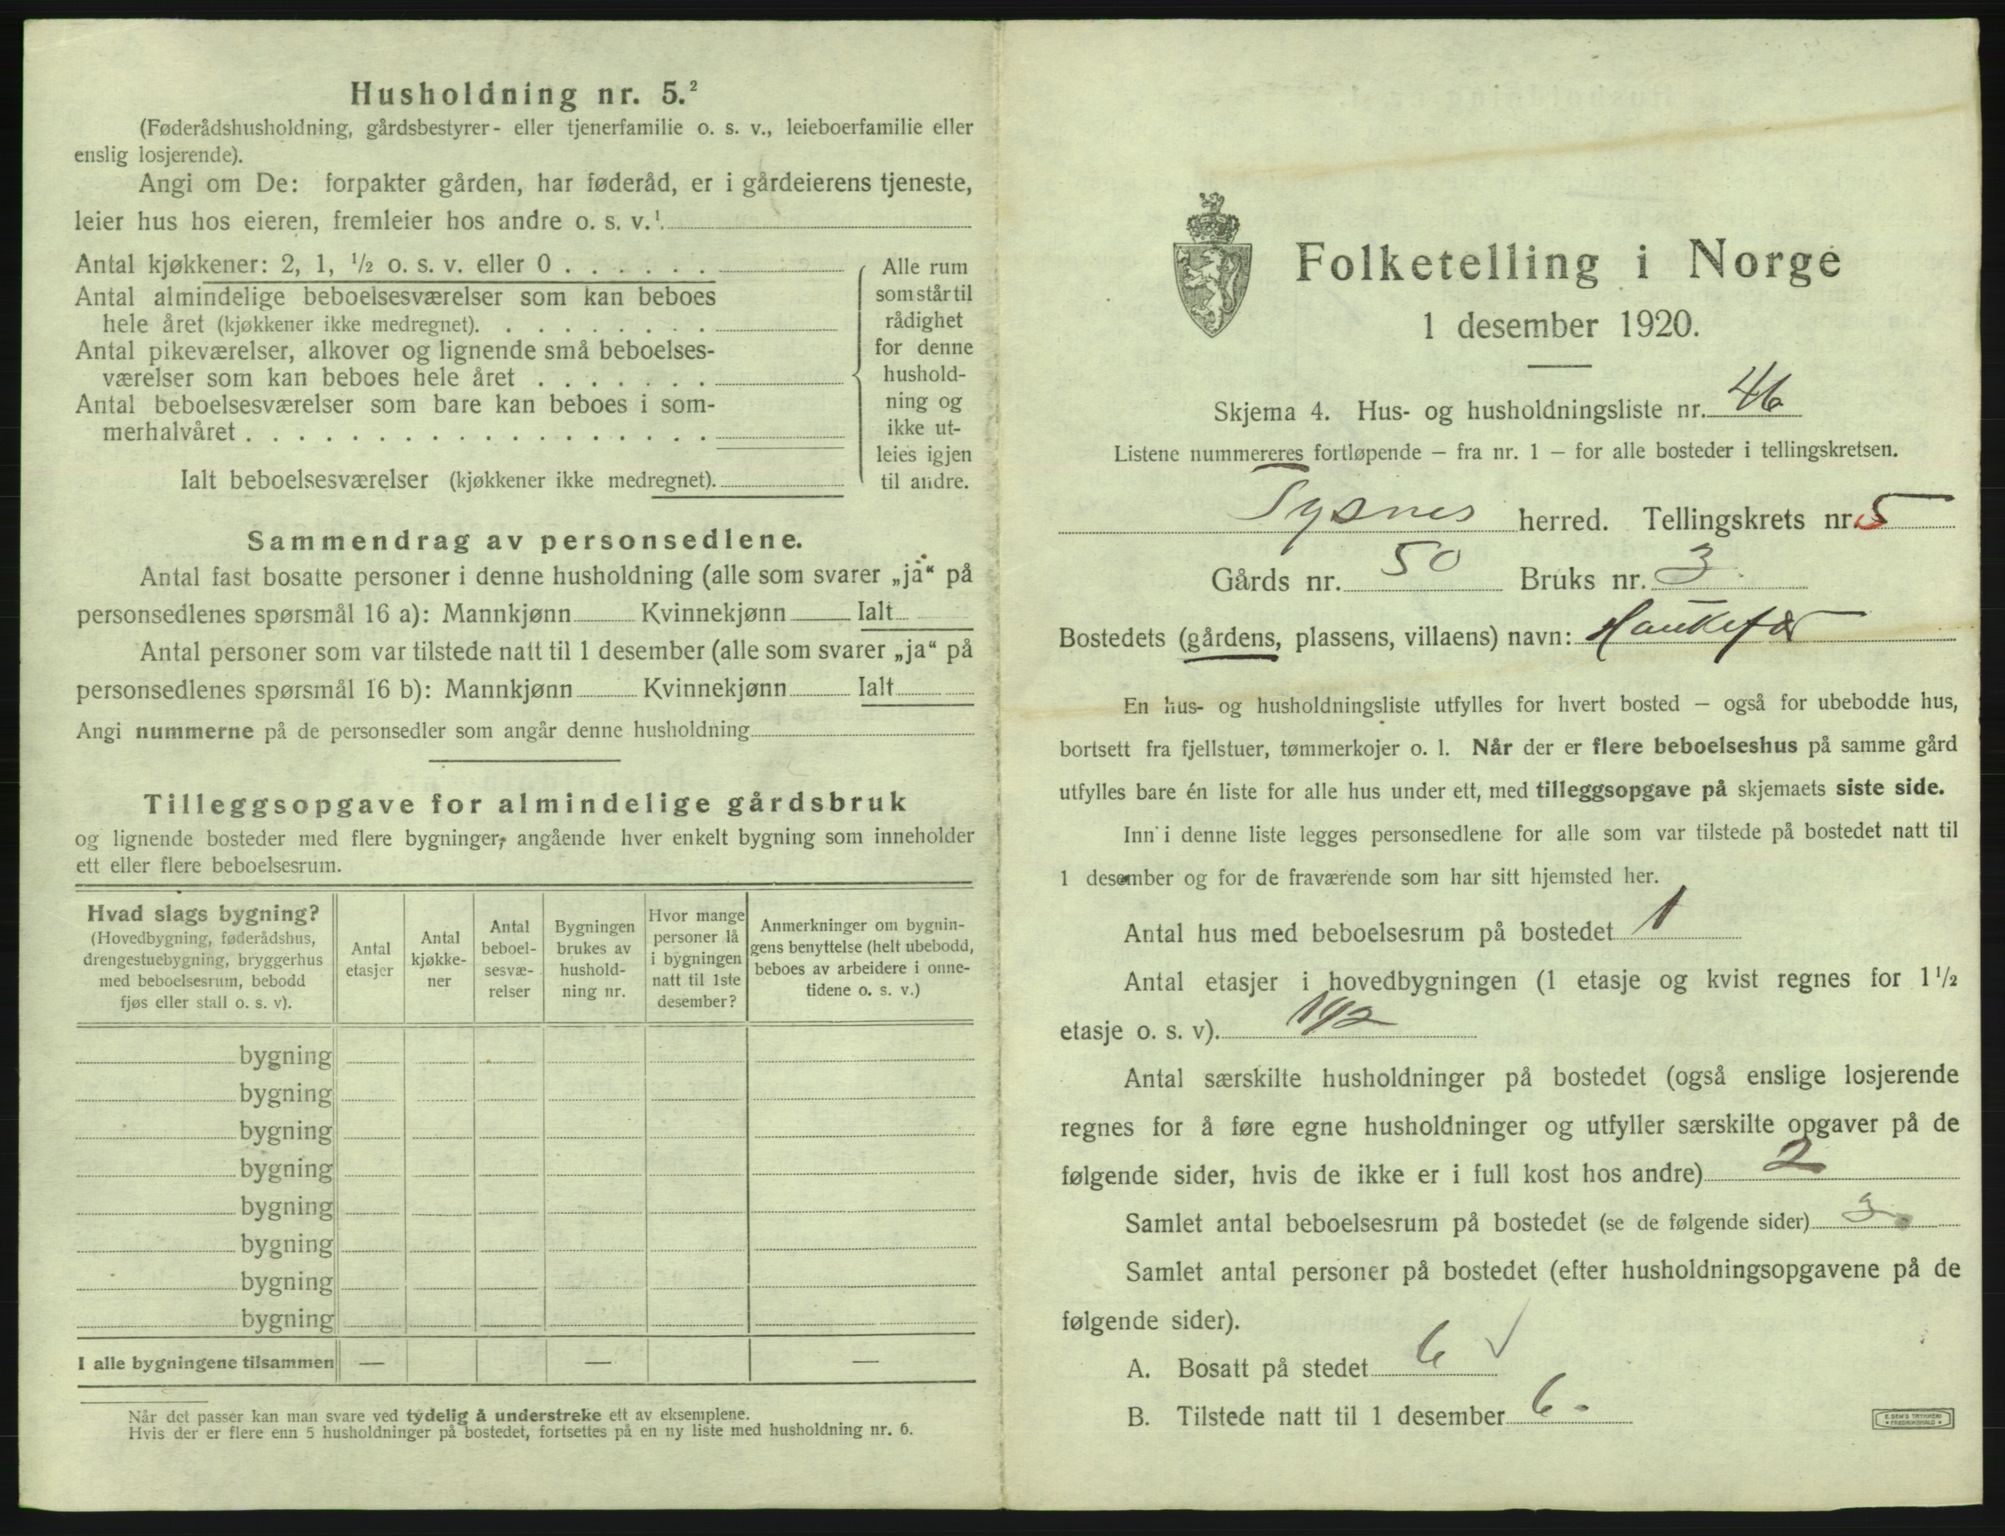 Husholdning nr. 5.²
(Føderådshusholdning, gårdsbestyrer- eller tjenerfamilie o. s. v., leieboerfamilie eller
enslig losjerende).
Angi om De: forpakter gården, har føderåd, er i gårdeierens tjeneste,
leier hus hos eieren, fremleier hos andre o. s. v.¹.
Antal kjøkkener: 2, 1, ½ o. s. v. eller 0 . . . . . .
Antal almindelige beboelsesværelser som kan beboes
hele året (kjøkkener ikke medregnet). . . . . . . . .
Antal pikeværelser, alkover og lignende små beboelses-
værelser som kan beboes hele året . . . . . . .
Antal beboelsesværelser som bare kan beboes i som-
merhalvåret . . . . . . . . . . . . . . . . . .
Ialt beboelsesværelser (kjøkkener ikke medregnet).
Alle rum
som står til
rådighet
for denne
hushold-
ning og
ikke ut-
leies igjen
til andre.
Sammendrag av personsedlene.
Antal fast bosatte personer i denne husholdning (alle som svarer „ja“ på
personsedlenes spørsmål 16 a): Mannkjønn Kvinnekjønn Ialt
Antal personer som var tilstede natt til 1 desember (alle som svarer „ja“ på
personsedlenes spørsmål 16 b): Mannkjønn Kvinnekjønn Ialt
Angi nummerne på de personsedler som angår denne husholdning
Tilleggsopgave for almindelige gårdsbruk
og lignende bosteder med flere bygninger, angående hver enkelt bygning som inneholder
ett eller flere beboelsesrum.
Hvad slags bygning?
(Hovedbygning, føderådshus,
drengestuebygning, bryggerhus
med beboelsesrum, bebodd
fjøs eller stall o. s. v).
Antal
etasjer
Antal
kjøkke-
ner
Antal
beboel-
sesvæ-
relser
Bygningen
brukes av
hushold-
ning nr.
Hvor mange
personer lå
i bygningen
natt til 1ste
desember?
Anmerkninger om bygnin-
gens benyttelse (helt ubebodd,
beboes av arbeidere i onne-
tidene o. s. v.)
bygning
bygning
bygning
bygning
bygning
bygning
bygning
bygning
I alle bygningene tilsammen — — —
Når det passer kan man svare ved tydelig å understreke ett av eksemplene.
Hvis der er flere enn 5 husholdninger på bostedet, fortsettes på en ny liste med husholdning nr. 6.
Folketelling i Norge
1 desember 1920.
Skjema 4. Hus- og husholdningsliste nr. 46
Listene nummereres fortløpende – fra nr. 1 – for alle bosteder i tellingskretsen.
Tysnes herred. Tellingskrets nr. 5
Gårds nr. 50 Bruks nr. 3.
Bostedets (gårdens, plassens, villaens) navn: Haukefær
En hus- og husholdningsliste utfylles for hvert bosted – også for ubebodde hus,
bortsett fra fjellstuer, tømmerkojer o. l. Når der er flere beboelseshus på samme gård
utfylles bare én liste for alle hus under ett, med tilleggsopgave på skjemaets siste side.
Inn i denne liste legges personsedlene for alle som var tilstede på bostedet natt til
1 desember og for de fraværende som har sitt hjemsted her.
Antal hus med beboelsesrum på bostedet 1
Antal etasjer i hovedbygningen (1 etasje og kvist regnes for 1½
etasje o. s. v). 1 1/2
Antal særskilte husholdninger på bostedet (også enslige losjerende
regnes for å føre egne husholdninger og utfyller særskilte opgaver på de
følgende sider, hvis de ikke er i full kost hos andre) 2
Samlet antal beboelsesrum på bostedet (se de følgende sider) 3.
Samlet antal personer på bostedet (efter husholdningsopgavene på de
følgende sider).
A. Bosatt på stedet 6 ✓
B. Tilstede natt til 1 desember 6.
E. SEM'S TRYKKERI
FREDRIKSHALD